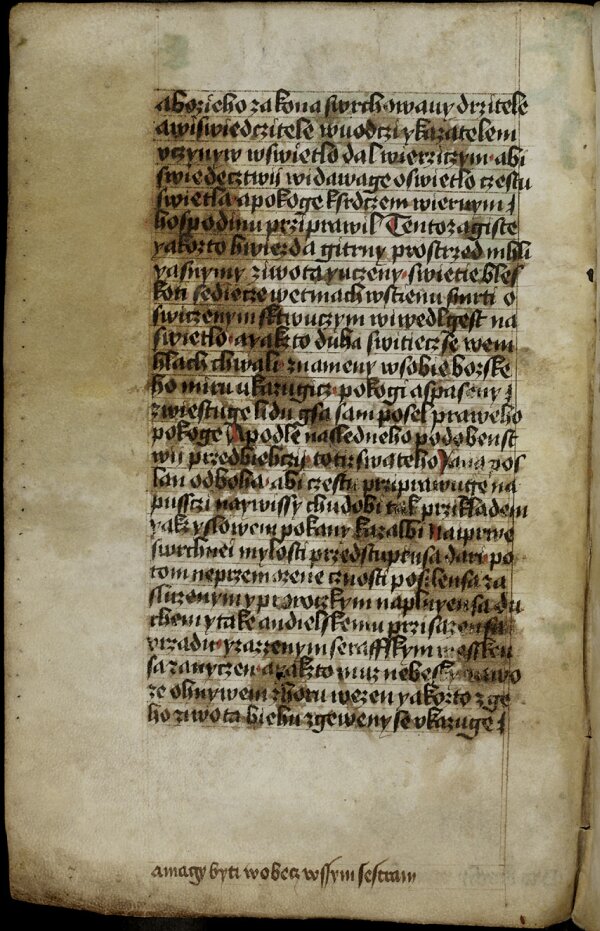 abozieho zakona swrchowany drzitele
awiswiedczitele wuodczi ykazatelem
vczynyw wswietlo dal wierziczym abi
swiedecztwij widawage oswietlo czestu
swietla apokoge ksrdczem wiernym
hospodinu prziprawil Tentozagiste
yakozto hwiezda gitrny prostrzed mhli
yasnymy ziwota yuczeny swietie bles
koti sediecze wetmach wstienu smrti o
swiczenym sktwuczym wiwedlgest na
swietlo ayakzto duha switiecz se wem
hlach chwali znameny wsobie bozske
ho miru ukazugicz pokogi aspaseny
zwiestuge lidu gsa sam posel praweho
pokoge Apodle naslednehopodobenst
wij przedbiehczij totiz swateho Jana pos
lan odboha abi czestu prziprawuge na
pussczi naywissy chudobi tak przikladem
yakz yslowem pokany kazalbi Naiprwe
swrchnei mylosti przedstuptusa dari po
tom neprzemozene cznosti poslensa za
sluzonymyproroczkym naplnyensa du
chem ytake andielskemu przisazensa
vrzadu yzazzenym seraffskym wossken
sazanyczen ayakzto muz nebesky nawo
ze ohnywem zhoru wezen yakozto zge
ho ziwota biehu zgeweny se vkazuge
amagy byti wobecz wssym sestram